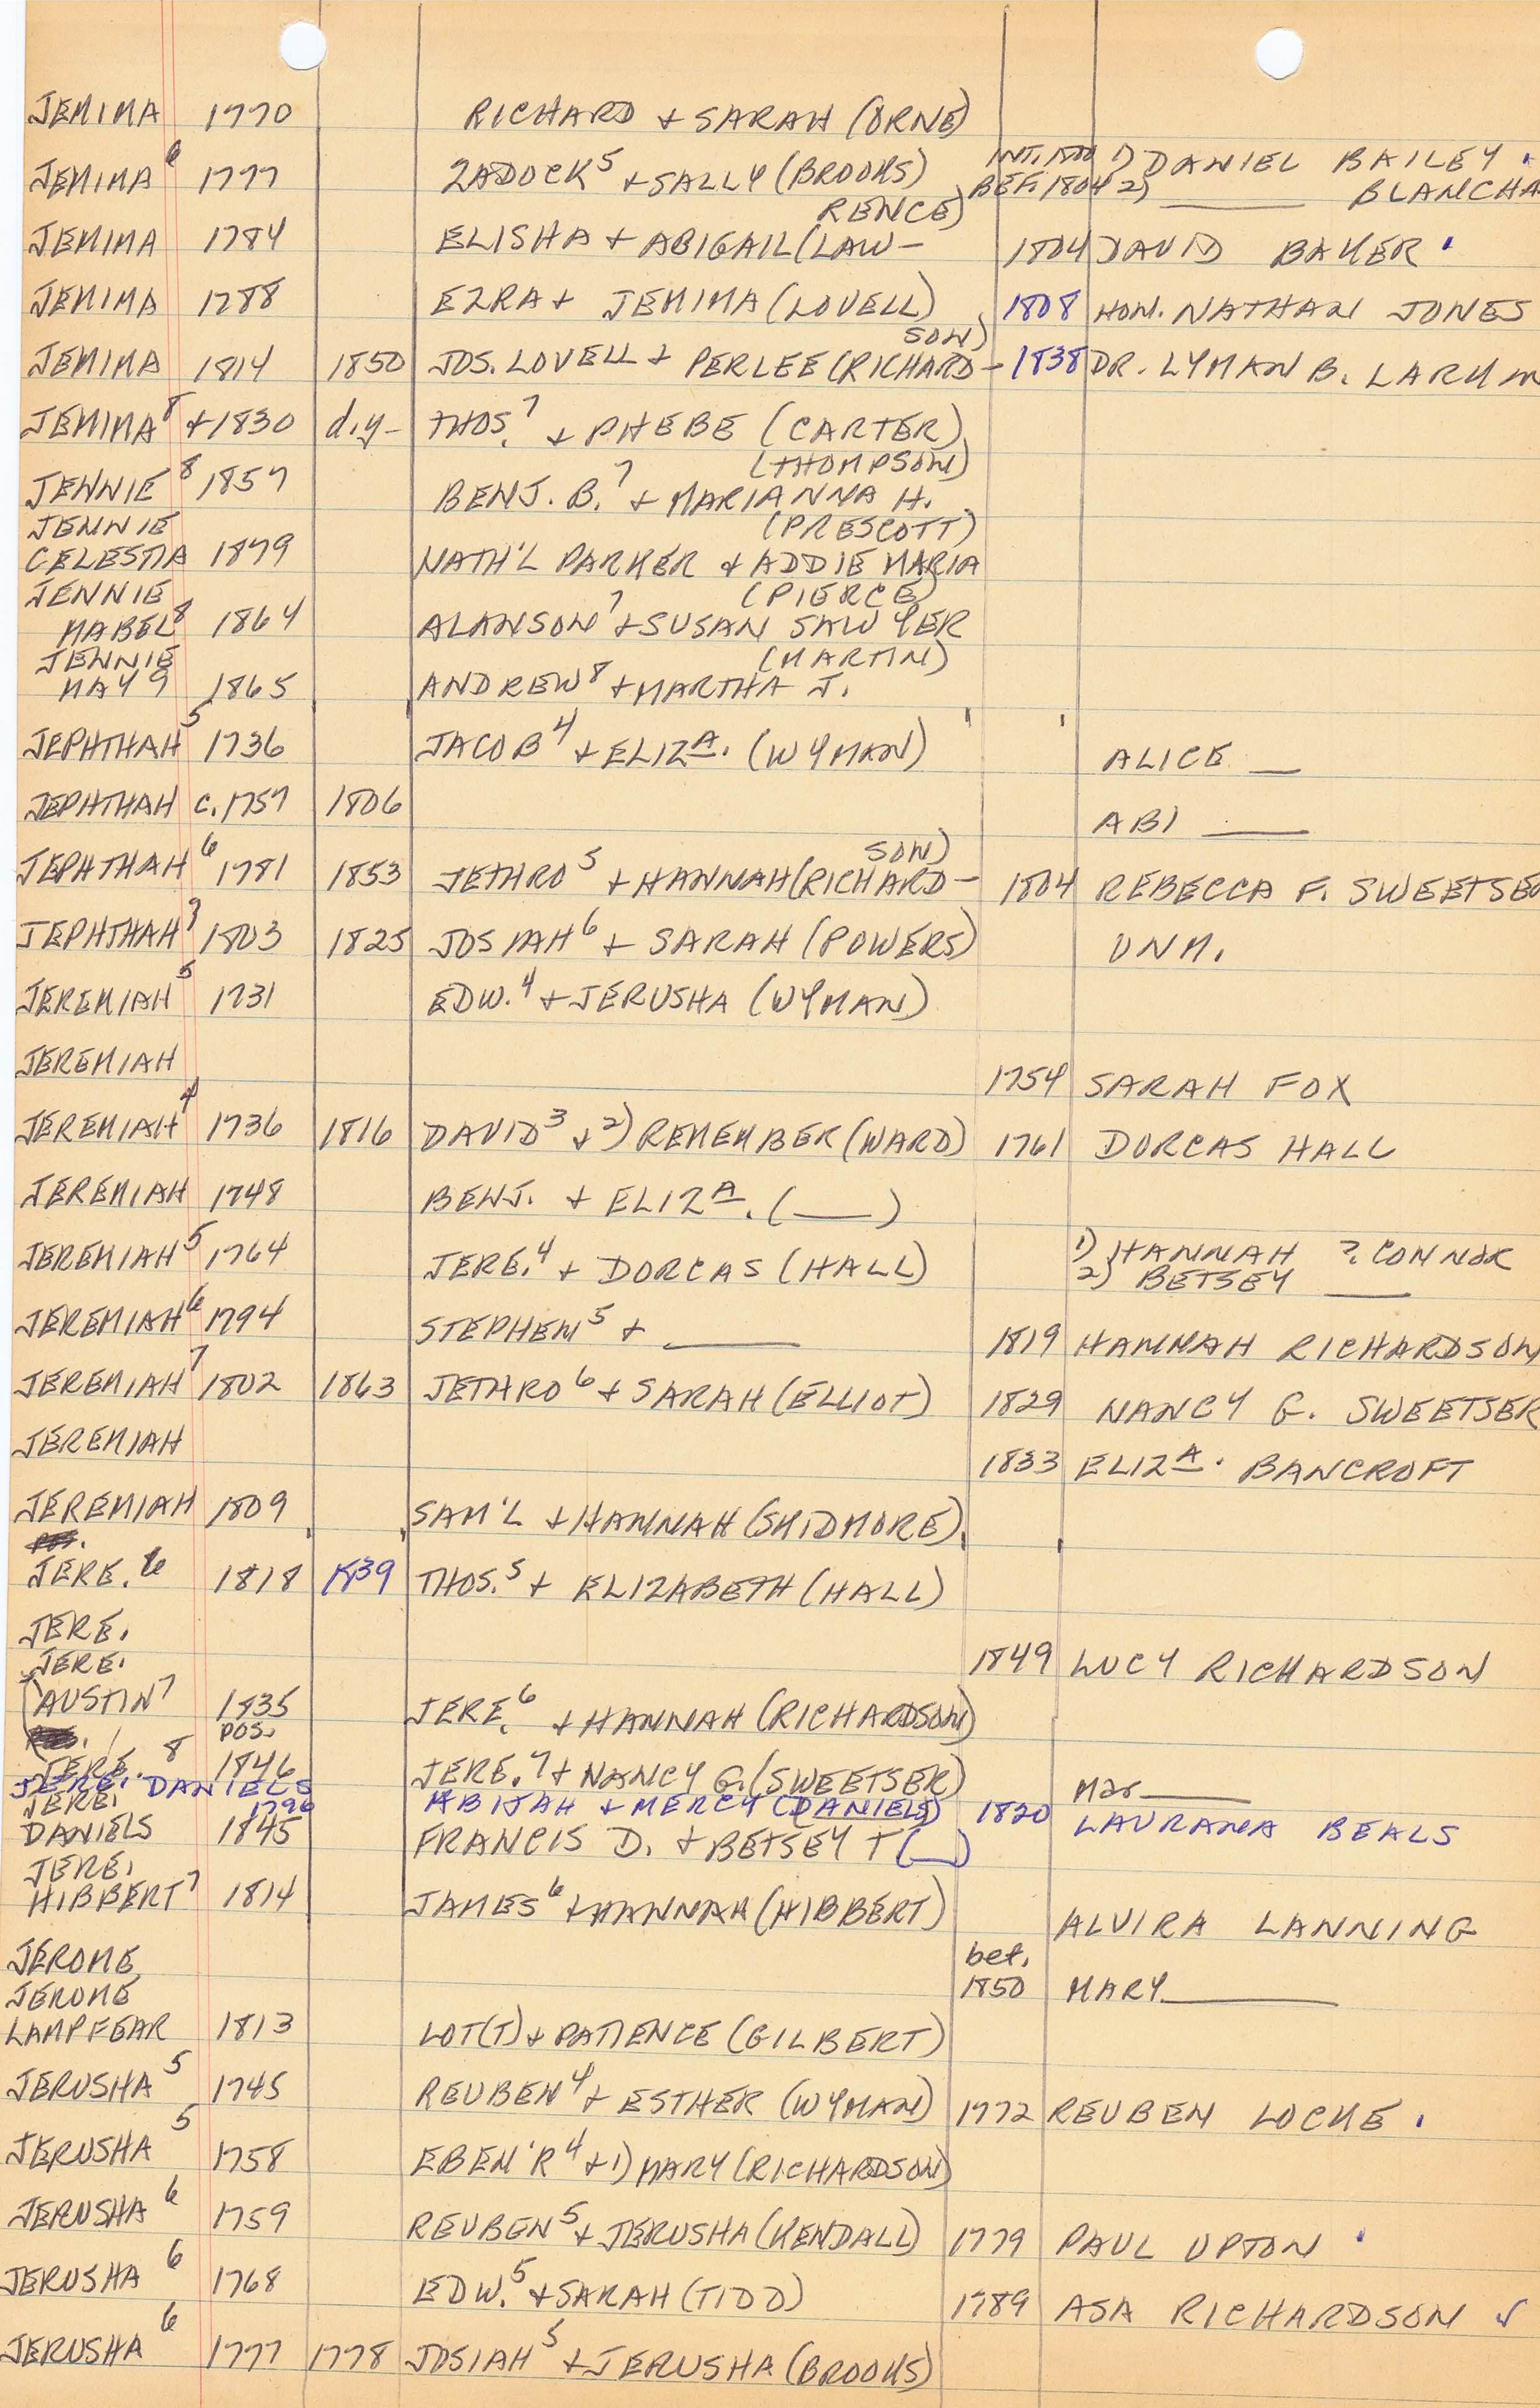 JEMIMA 1770 RICHARD + SARAH (ORNE)
JEMIMA 6 1777 ZADOCK 5 + SALLY (BROOKS) INT. 1800 1) DANIEL BAILEY
BEF. 1804 2) ____ BLANCHA
RENCE)
JEMIMA 1784 ELISHA + ABIGAIL (LAW- 1804 DAVID BAKER
JEMIMA 1788 EZRA + JEMIMA (LOVELL) 1808 HON. NATHAN JONES
SON)
JEMIMA 1814 1850 JOS. LOVELL + PERLEE (RICHARD- 1838 DR. LYMAN B. LARKIN
JEMIMA 8 +1830 d.y- THOS. 7 + PHEBE (CARTER)
(THOMPSON)
JENNIE 8 1857 BENJ. B. 7 + MARIANNA H.
JENNIE (PRESCOTT)
CELESTIA 1879 NATH'L PARKER + ADDIE MARIA
JENNIE (PIERCE)
MABEL 8 1864 ALANSON 7 + SUSAN SAWYER
JENNIE (MARTIN)
MAY 9 1865 ANDREW 8 + MARTHA J.
JEPHTHAH 5 1736 JACOB 4 + ELIZA. (WYMAN) ALICE __
JEPHTHAH c. 1757 1806 ABI ____
SON)
JEPHTHAH 6 1781 1853 JETHRO 5 + HANNAH (RICHARD- 1804 REBECCA F. SWEETSER
JEPHTHAH 7 1803 1825 JOSIAH 6 + SARAH (POWERS) UNM.
JEREMIAH 5 1731 EDW. 4 + JERUSHA (WYMAN)
JEREMIAH 1754 SARAH FOX
JEREMIAH 4 1736 1816 DAVID 3 + 2) REMEMBER (WARD) 1761 DORCAS HALL
JEREMIAH 1748 BENJ. + ELIZA. (___)
JEREMIAH 5 1764 JERE. 4 + DORCAS (HALL) 1) HANNAH ? CONNOR
2) BETSEY ____
JEREMIAH 6 1794 STEPHEN 5 + ____ 1819 HANNAH RICHARDSON
JEREMIAH 7 1802 1863 JETHRO 6 + SARAH (ELLIOT) 1829 NANCY G. SWEETSER
JEREMIAH 1833 ELIZA. BANCROFT
JEREMIAH 1809 SAM'L + HANNAH (SKIDMORE)
JERE. 6 1818 1839 THOS. 5 + ELIZABETH (HALL)
JERE. 1849 LUCY RICHARDSON
JERE.
(AUSTIN 7 1835 JERE. 6 + HANNAH (RICHARDSON)
POS.
JERE. 8 1846 JERE. 7 + NANCY G. (SWEETSER) Mar ____
JERE. DANIELS 1796 ABIJAH + MERCY (DANIELS) 1820 LAURANA BEALS
JERE.
DANIELS 1845 FRANCIS D. + BETSEY T (__)
JERE.
HIBBERT 7 1814 JAMES 6 + HANNAH (HIBBERT) ALVIRA LANNING
JEROME bef. 1850 MARY ____
JEROME
LAMPFEAR 1813 LOT(T) + PATIENCE (GILBERT)
JERUSHA 5 1745 REUBEN 4 + ESTHER (WYMAN) 1772 REUBEN LOCKE
JERUSHA 5 1758 EBEN'R 4 + 1) MARY (RICHARDSON)
JERUSHA 6 1759 REUBEN 5 + JERUSHA (KENDALL) 1779 PAUL UPTON
JERUSHA 6 1768 EDW. 5 + SARAH (TIDD) 1789 ASA RICHARDSON ✓
JERUSHA 6 1777 1778 JOSIAH 5 + JERUSHA (BROOKS)